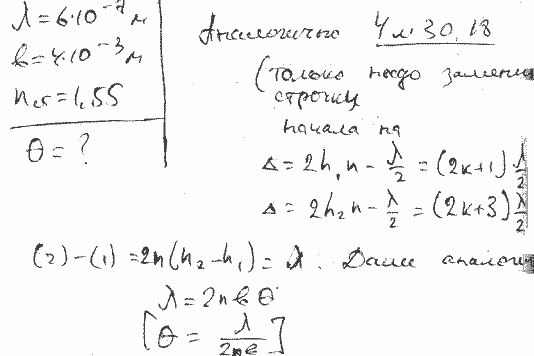 λ = 6·10⁻⁷ м
b = 4·10⁻³ м
n = 1,55
θ = ?
Аналогично Чл. 30.18
(только надо замени
строчку
начала на
Δ = 2h₁n - λ/2 = (2k+1) λ/2
Δ = 2h₂n - λ/2 = (2k+3) λ/2
(2)-(1) = 2n(h₂-h₁) = λ. Далее аналоги
λ = 2nbθ
[θ = λ/2nb]